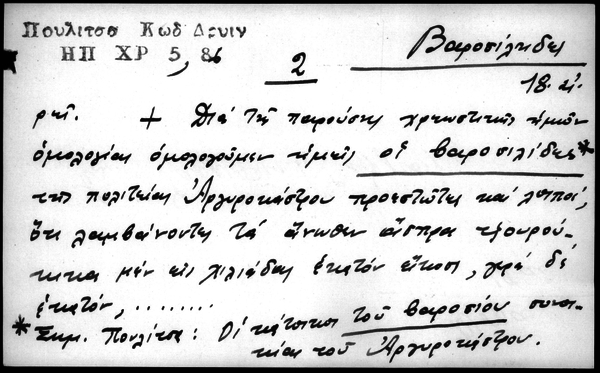 Πουλιτσα Κωδ Δρυιν
ΗΠ ΧΡ 5, 86
2
Βαροσιλίδες
18. αἰ.
ρητ. + Διά τῆς παρούσης χρεωστικῆς ἡμῶν
ὁμολογίας ὁμολογοῦμεν ἡμεῖς οἱ βαροσιλίδες*
τῆς πολιτείας Ἀργυροκάστρου προεστῶτες καί λοιποί,
ὅτι λαμβάνοντες τά ἄνωθεν ἄσπρα τζουρού-
κικα μέν εἰς χιλιάδας ἑκατόν εἴκοσι, γερά δέ
ἑκατόν, ........
* Σημ. Πουλίτσα: Οἱ κάτοικοι τοῦ βαροσίου συνοι-
κίας τοῦ Ἀργυροκάστρου.